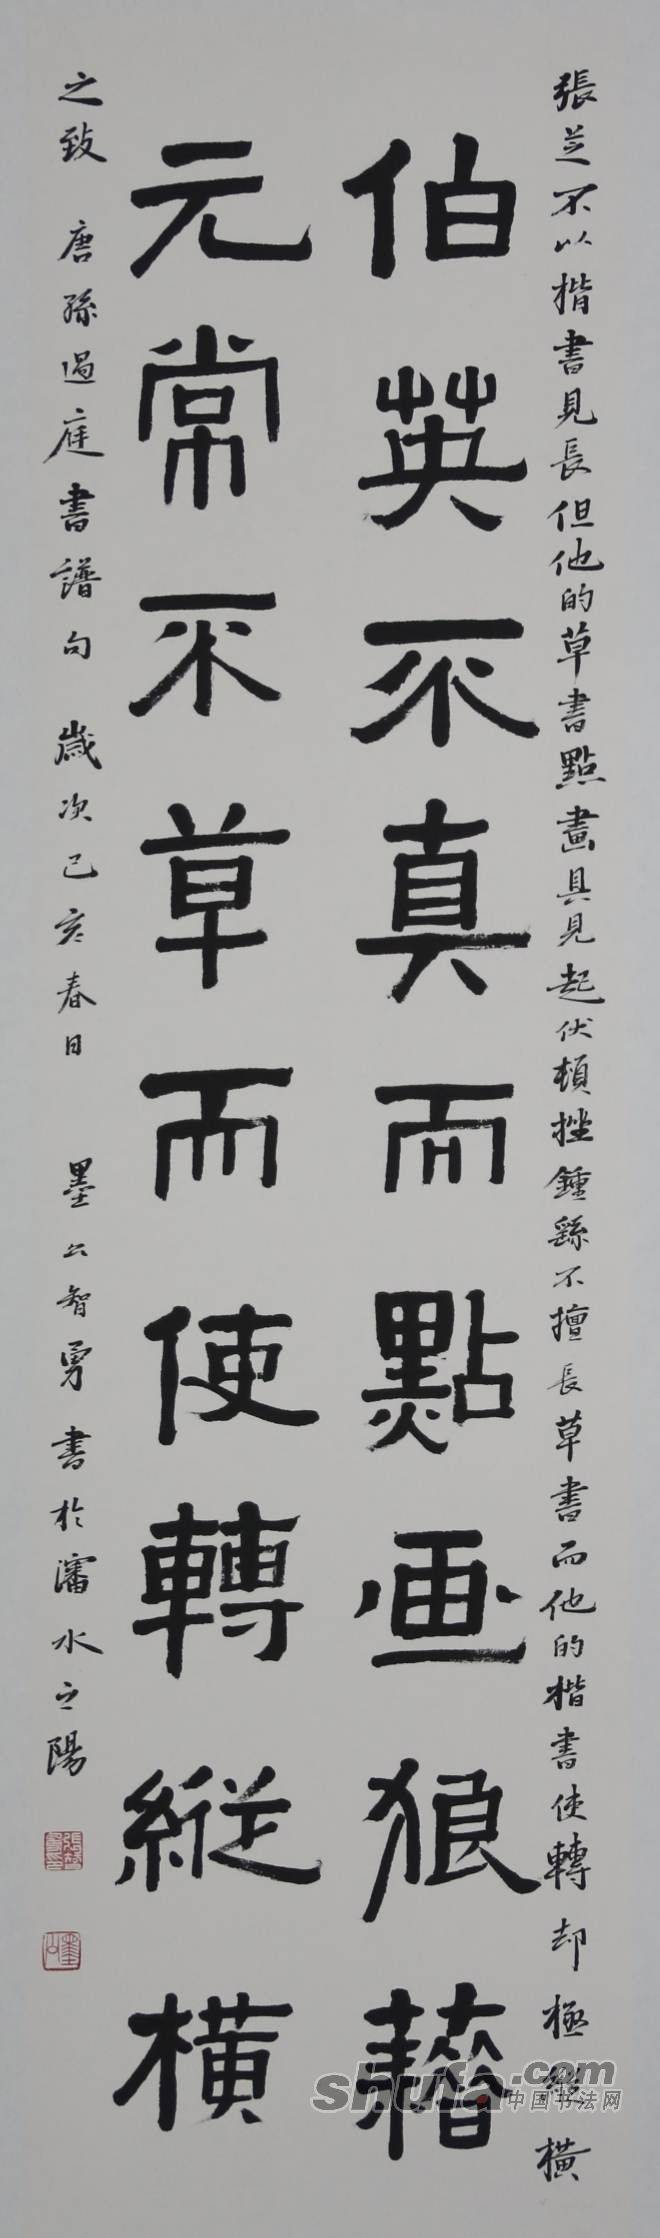 張芝不以楷書見長但他的草書點畫具見起伏頓挫鍾繇不擅長草書而他的楷書使轉却極縱橫
伯英不真而點画狼藉
元常不草而使轉縱橫
之致 唐孫過庭書譜句 歲次己亥春日 墨公智勇書於瀋水之陽
shufa.com
中国书法网